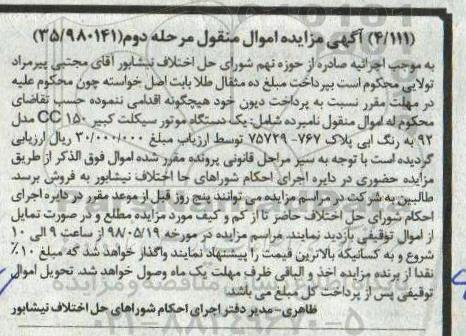 (۴/۱۱۱) آگهی مزایده اموال منقول مرحله دوم(۳۵/۹۸۰۱۴۱)
به موجب اجرائیه صادره از حوزه نهم شورای حل اختلاف نیشابور آقای مجتبی پیرمراد
تولایی محکوم است بپرداخت مبلغ ده مثقال طلا بابت اصل خواسته چون محکوم علیه
در مهلت مقرر نسبت به پرداخت دیون خود هیچگونه اقدامی ننموده حسب تقاضای
محکوم له اموال منقول نامبرده شامل: یک دستگاه موتور سیکلت کبیر ۱۵۰ CC مدل
۹۲ به رنگ ابی پلاک ۷۶۷- ۷۵۷۲۹ توسط ارزیاب مبلغ ۳۰/۰۰۰/۰۰۰ ریال ارزیابی
گردیده است با توجه به سیر مراحل قانونی پرونده مقرر شده اموال فوق الذکر از طریق
مزایده حضوری در دایره اجرای احکام شوراهای حا اختلاف نیشابور به فروش برسد.
طالبین به شرکت در مراسم مزایده می توانند پنج روز قبل از موعد مقرر در دایره اجرای
احکام شورای حل اختلاف حاضر تا از کم و کیف مورد مزایده مطلع و در صورت تمایل
از اموال توقیفی بازدید نمایند. مراسم مزایده در مورخه ۹۸۰۵/۱۹ از ساعت ۹ الی ۱۰
شروع و به کسانیکه بالاترین قیمت را پیشنهاد نمایند واگذار خواهد شد که مبلغ ۱۰٪
نقدا از برنده مزایده اخذ و الباقی ظرف مهلت یک ماه وصول خواهد شد. تحویل اموال
توقیفی پس از پرداخت کل مبلغ می باشد.
ظاهری- مدیر دفتر اجرای احکام شوراهای حل اختلاف نیشابور